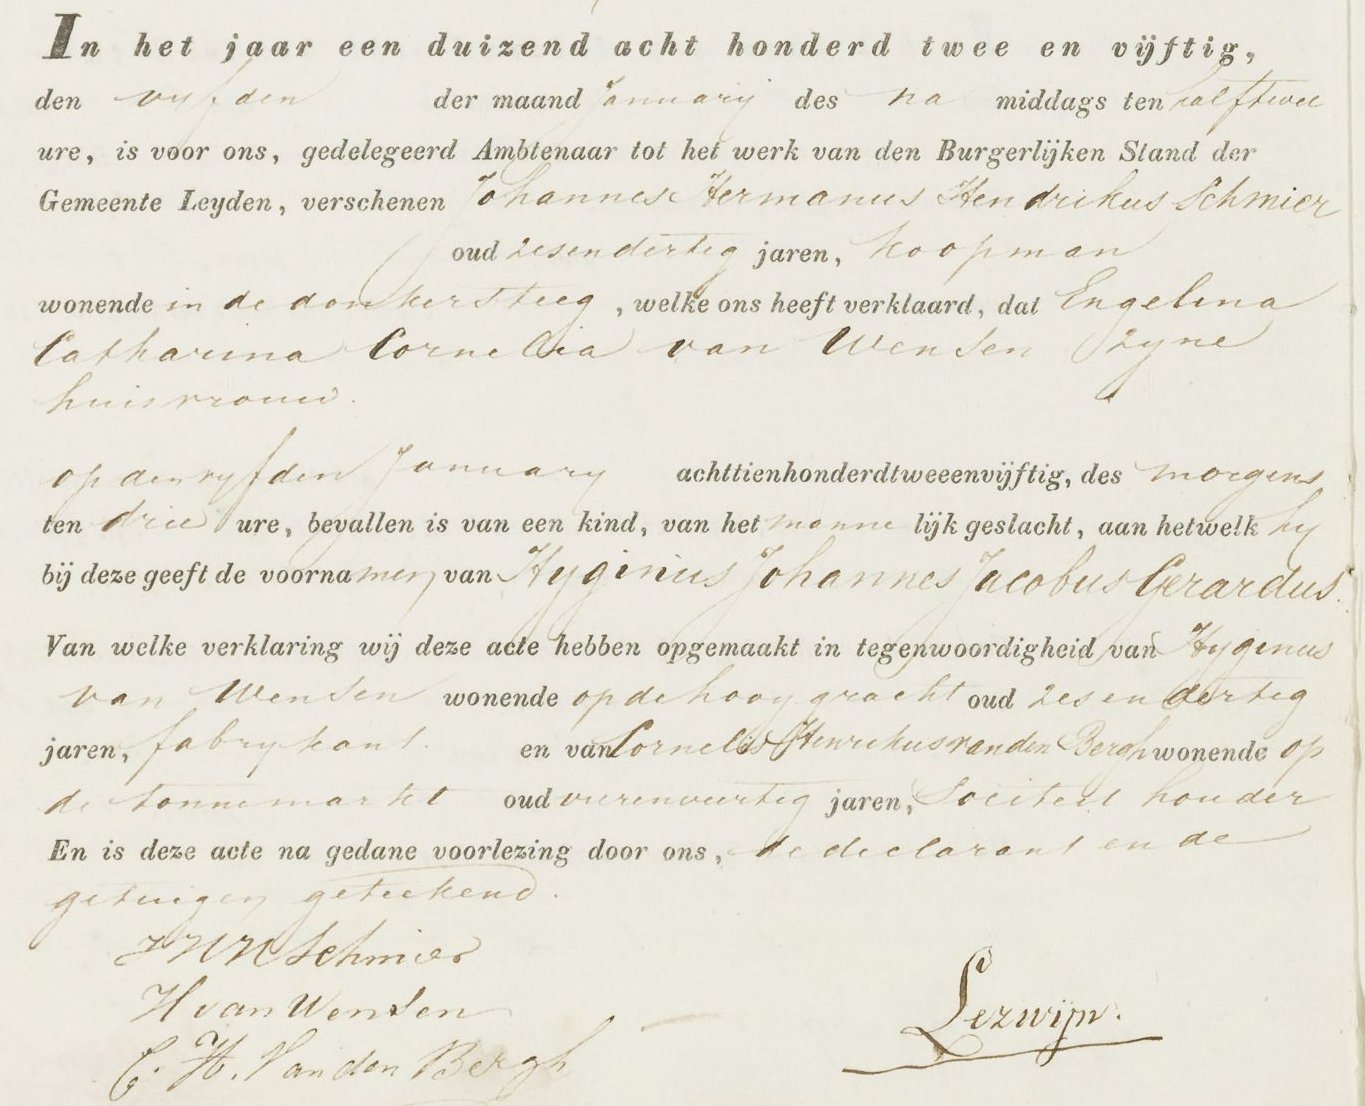 In het jaar een duizend acht honderd twee en vijftig,
den vyfden der maand January des na middags ten half twee
ure, is voor ons, gedelegeerd Ambtenaar tot het werk van den Burgerlijken Stand der
Gemeente Leyden, verschenen Johannes Hermanus Hendrikus Schmier
oud zesendertig jaren, koopman
wonende in de donkersteeg, welke ons heeft verklaard, dat Engelina
Catharina Cornelia van Wensen zyne
huisvrouw.
op den vyfden January achttienhonderdtweeenvijftig, des morgens
ten drie ure, bevallen is van een kind, van het mannelijk geslacht, aan hetwelk hy
bij deze geeft de voornamen van Hyginus Johannes Jacobus Gerardus.
Van welke verklaring wij deze acte hebben opgemaakt in tegenwoordigheid van Hyginus
van Wensen wonende op de hooygracht oud zesendertig
jaren, fabrykant. en van Cornelis Henrikus van den Bergh wonende op
de Aalmarkt oud vierenveertig jaren, Societeit houder
En is deze acte na gedane voorlezing door ons, de declarant en de
getuigen geteekend.
J H H Schmier
H van Wensen
C. H. Van den Bergh
Lezwijn.